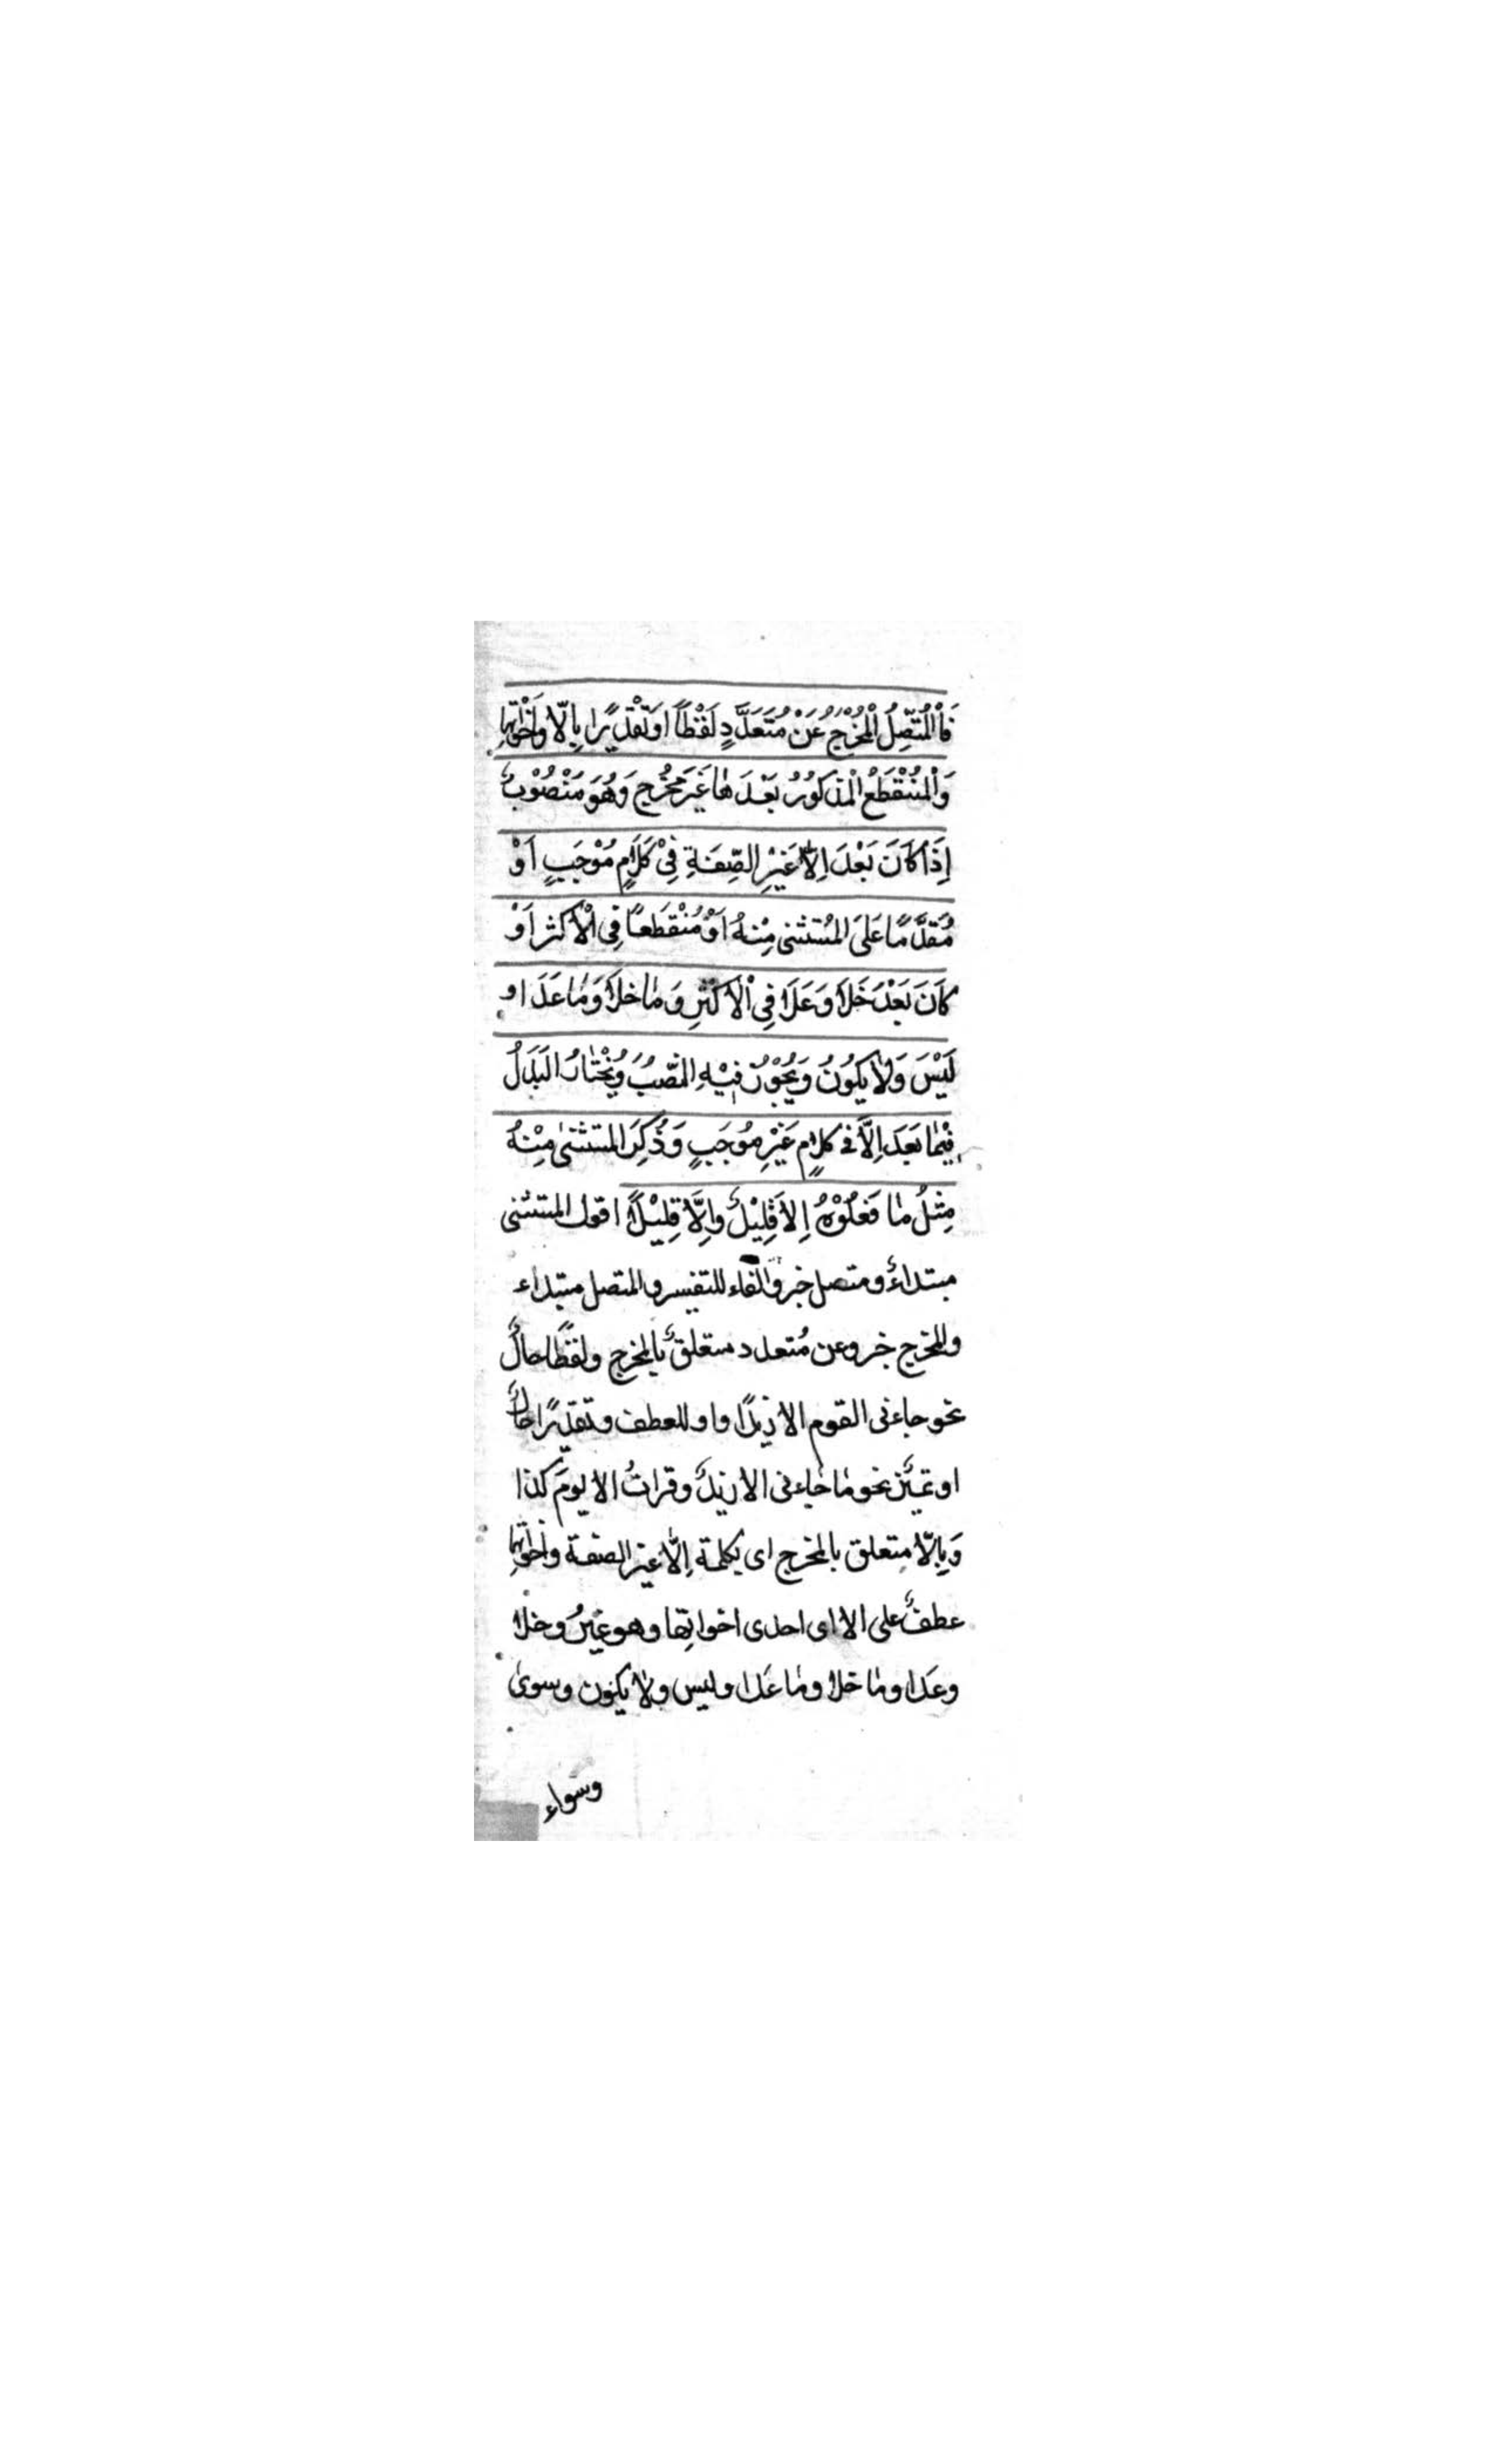 فَاْلْمُتَّصِلُ الْمُخْرَجُ عَنْ مُتَعَدَّدٍ لَفْظًا اَوْتَقْدِيْرًا بِاِلّا وَاَخَوٰاتِهَا
وَاْلْمُنْقَطَعُ الْمَذكوُرُ بَعْدَ هٰا غَيَرَ مُخْرَجٍ وَهُوَ مَنْصُوْبٌ
اِذَا كَانَ بَعْدَ اِلاّٰ غَيْرِ الصِّفَةِ فِىْ كَلَاٍم مُوْجَبٍ اَوْ
مُقَدَّمًا عَلىَ المُسْتثنى مِنْهُ اَوْ مُنْقَطَعًا فِى الْاَكثر اَوْ
كَانَ بَعْدَ خَلَا وَعَدَا فِى اْلاَكْثَرِ وَمٰا خلاَ وَمٰا عَدَا او
لَيْسَ وَلاٰ يَكوُنُ وَيَجُوْزُ فِيْهِ النَّصْبُ وَيُخْتٰارُ الْبَدَلُ
فِيْمٰا بَعَدَ اِلاَّ فى كلاٍم غَيْرِ مُوجَبٍ وَذُكِرَ المستثنىٰ مِنْهُ
مِثْلُ مٰا فَعَلُوْهُ اِلاَ قَلِيْلٌ وَاِلَّا قَلِيْلًا اقول المستثنى
مبتداءٌ ومتصل خبر والفاء للتفيسر والمتصل مبتداء
والمخرج خبر وعن مُتعدد متعلقٌ بالمخرج ولفظًا حالٌ
نحو جاءنى القوم الا زيدًا واو للعطف وتقديرًا حالٌ
او تميَيز نحو مٰا جٰاءنى الا زيدٌ وقراتُ الا يومَ كذا
وَبِاِلّا متعلق بالمخرج اى بكلمة اِلّا غير الصفة واخواتها
عطفٌ على الا اى احدى اخواتها وهو غيرُ وخلا
وعَدا ومٰا خلا ومٰا عَدا وليس ولا يكون وسوىٰ
وسواء